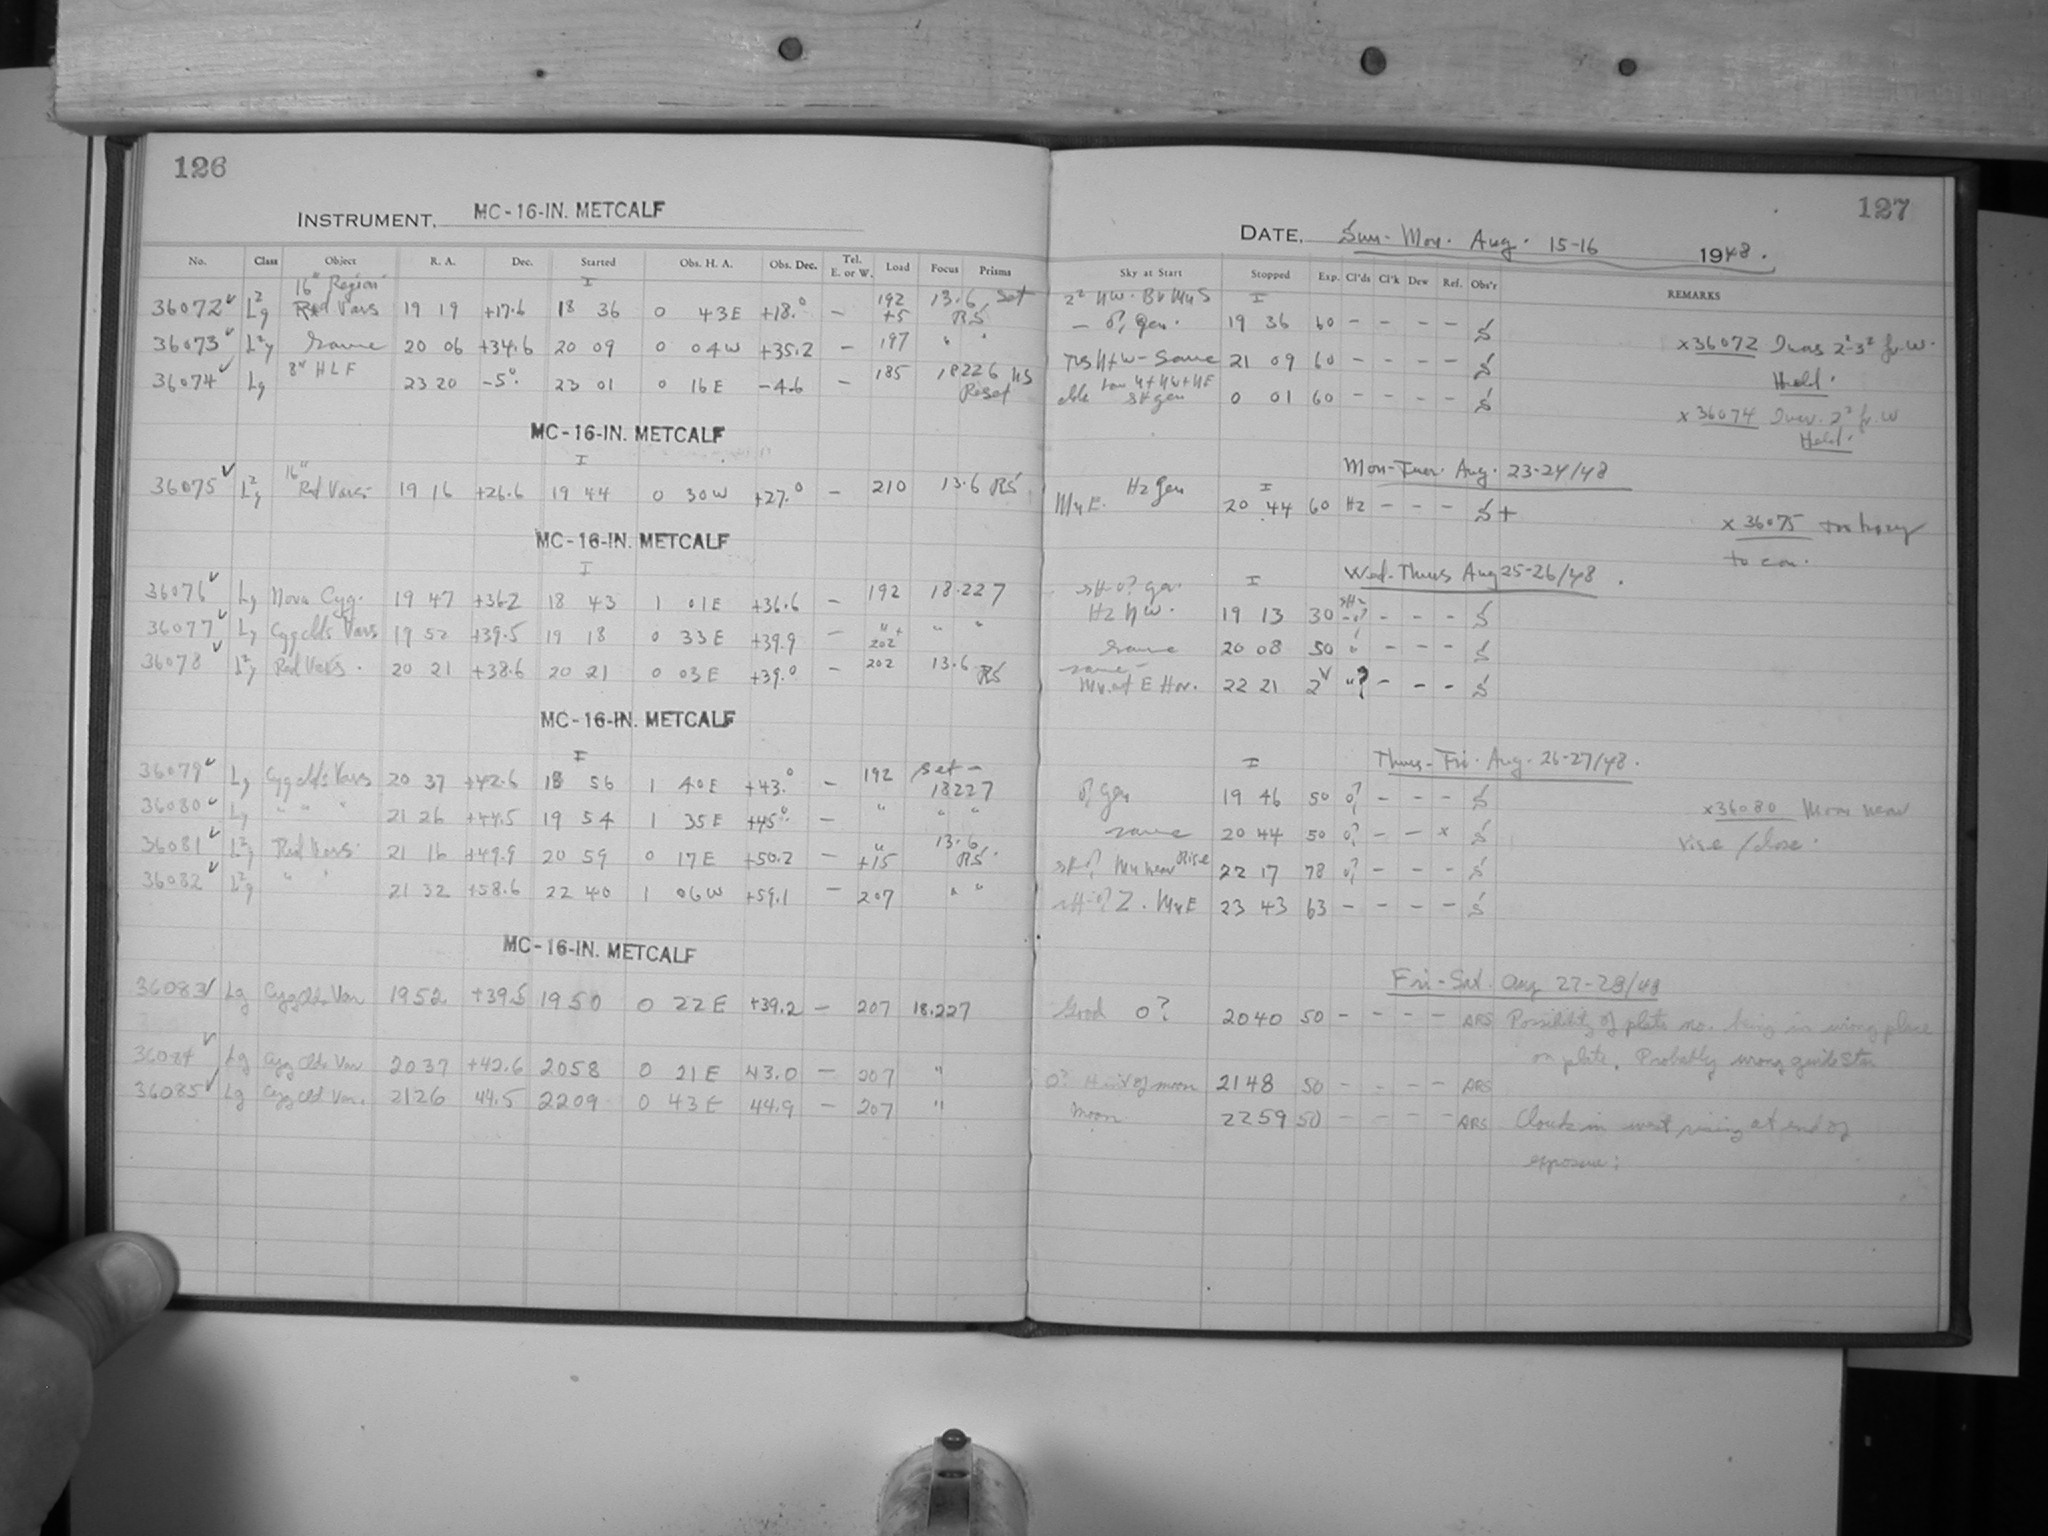 126
INSTRUMENT, MC-16-IN. METCALF
No. Class Object R. A. Dec. Started Obs. H. A. Obs. Dec. Tel. E. or W. Load Focus Prisms
16" Region I 192 13.6 Set
36072 L2g Red Vars 19 19 +17.6 18 36 0 43E +18.0 - +5 RS
36073 L2g Same 20 06 +34.6 20 09 0 04W +35.2 - 197 " "
36074 Lg 8" HLF 23 20 -5° 23 01 0 16E -4.6 - 185 18226 Reset
MC-16-IN. METCALF
I
36075 L2g 16" Red Vars 19 16 +26.6 19 44 0 30W +27.0 - 210 13.6 RS
MC-16-IN. METCALF
I
36076 Lg Nova Cyg. 19 47 +36.2 18 43 1 01E +36.6 - 192 18.227
36077 Lg Cyg clds Vars 19 52 +39.5 19 18 0 33E +39.9 - 202 " "
36078 L2g Red Vars. 20 21 +38.6 20 21 0 03E +39.0 - 202 13.6 RS
MC-16-IN. METCALF
I
36079 Lg Cyg clds Vars 20 37 +42.6 18 56 1 40E +43.0 - 192 Set - 18227
36080 Lg " " " 21 26 +44.5 19 54 1 35E +45.0 - " " "
36081 L2g Red Vars. 21 16 +49.9 20 59 0 17E +50.2 - " +15 13.6 RS
36082 L2g " " 21 32 +58.6 22 40 1 06W +59.1 - 207 " "
MC-16-IN. METCALF
36083 Lg Cyg Clds Var 1952 +39.5 1950 0 22E +39.2 - 207 18.227
36084 Lg Cyg Clds Var 2037 +42.6 2058 0 21E 43.0 - 207 "
36085 Lg Cyg Cld Var. 2126 44.5 2209 0 43E 44.9 - 207 "
127
DATE, Sun- Mon. Aug. 15-16 1948.
Sky at Start Stopped Exp. Cl'ds Cl'k Dew Ref. Obs'r REMARKS
I
- 0? Gen. 19 36 60 - - - - S x 36072
Hold.
Same 21 09 60 - - - - S
0 01 60 - - - - S x 36074
Held.
Mon-Tues. Aug. 23-24/48
Hz Gen I
Mn E. 20 44 60 Hz - - - S+ x 36075 too hazy
to con.
Wed-Thurs Aug 25-26/48
I
Hz NW. 19 13 30 - - - S
Same 20 08 50 " - - - S
same -
Mn at E Hor. 22 21 2 "? - - - S
Thurs-Fri. Aug. 26-27/48.
I
0? Gen 19 46 50 0? - - - S
same 20 44 50 0? - - x S x 36080 Moon near
rise / close.
Mn near Rise 22 17 78 0? - - - S
Z. Mn E 23 43 63 - - - - S
Fri-Sat. Aug 27-28/48
Good 0? 2040 50 - - - - ARS Possibility of plate no. being in wrong place
on plate. Probably wrong guide star
0? moon 2148 50 - - - - ARS
moon 2259 50 - - - - ARS Clouds in west rising at end of
exposure: